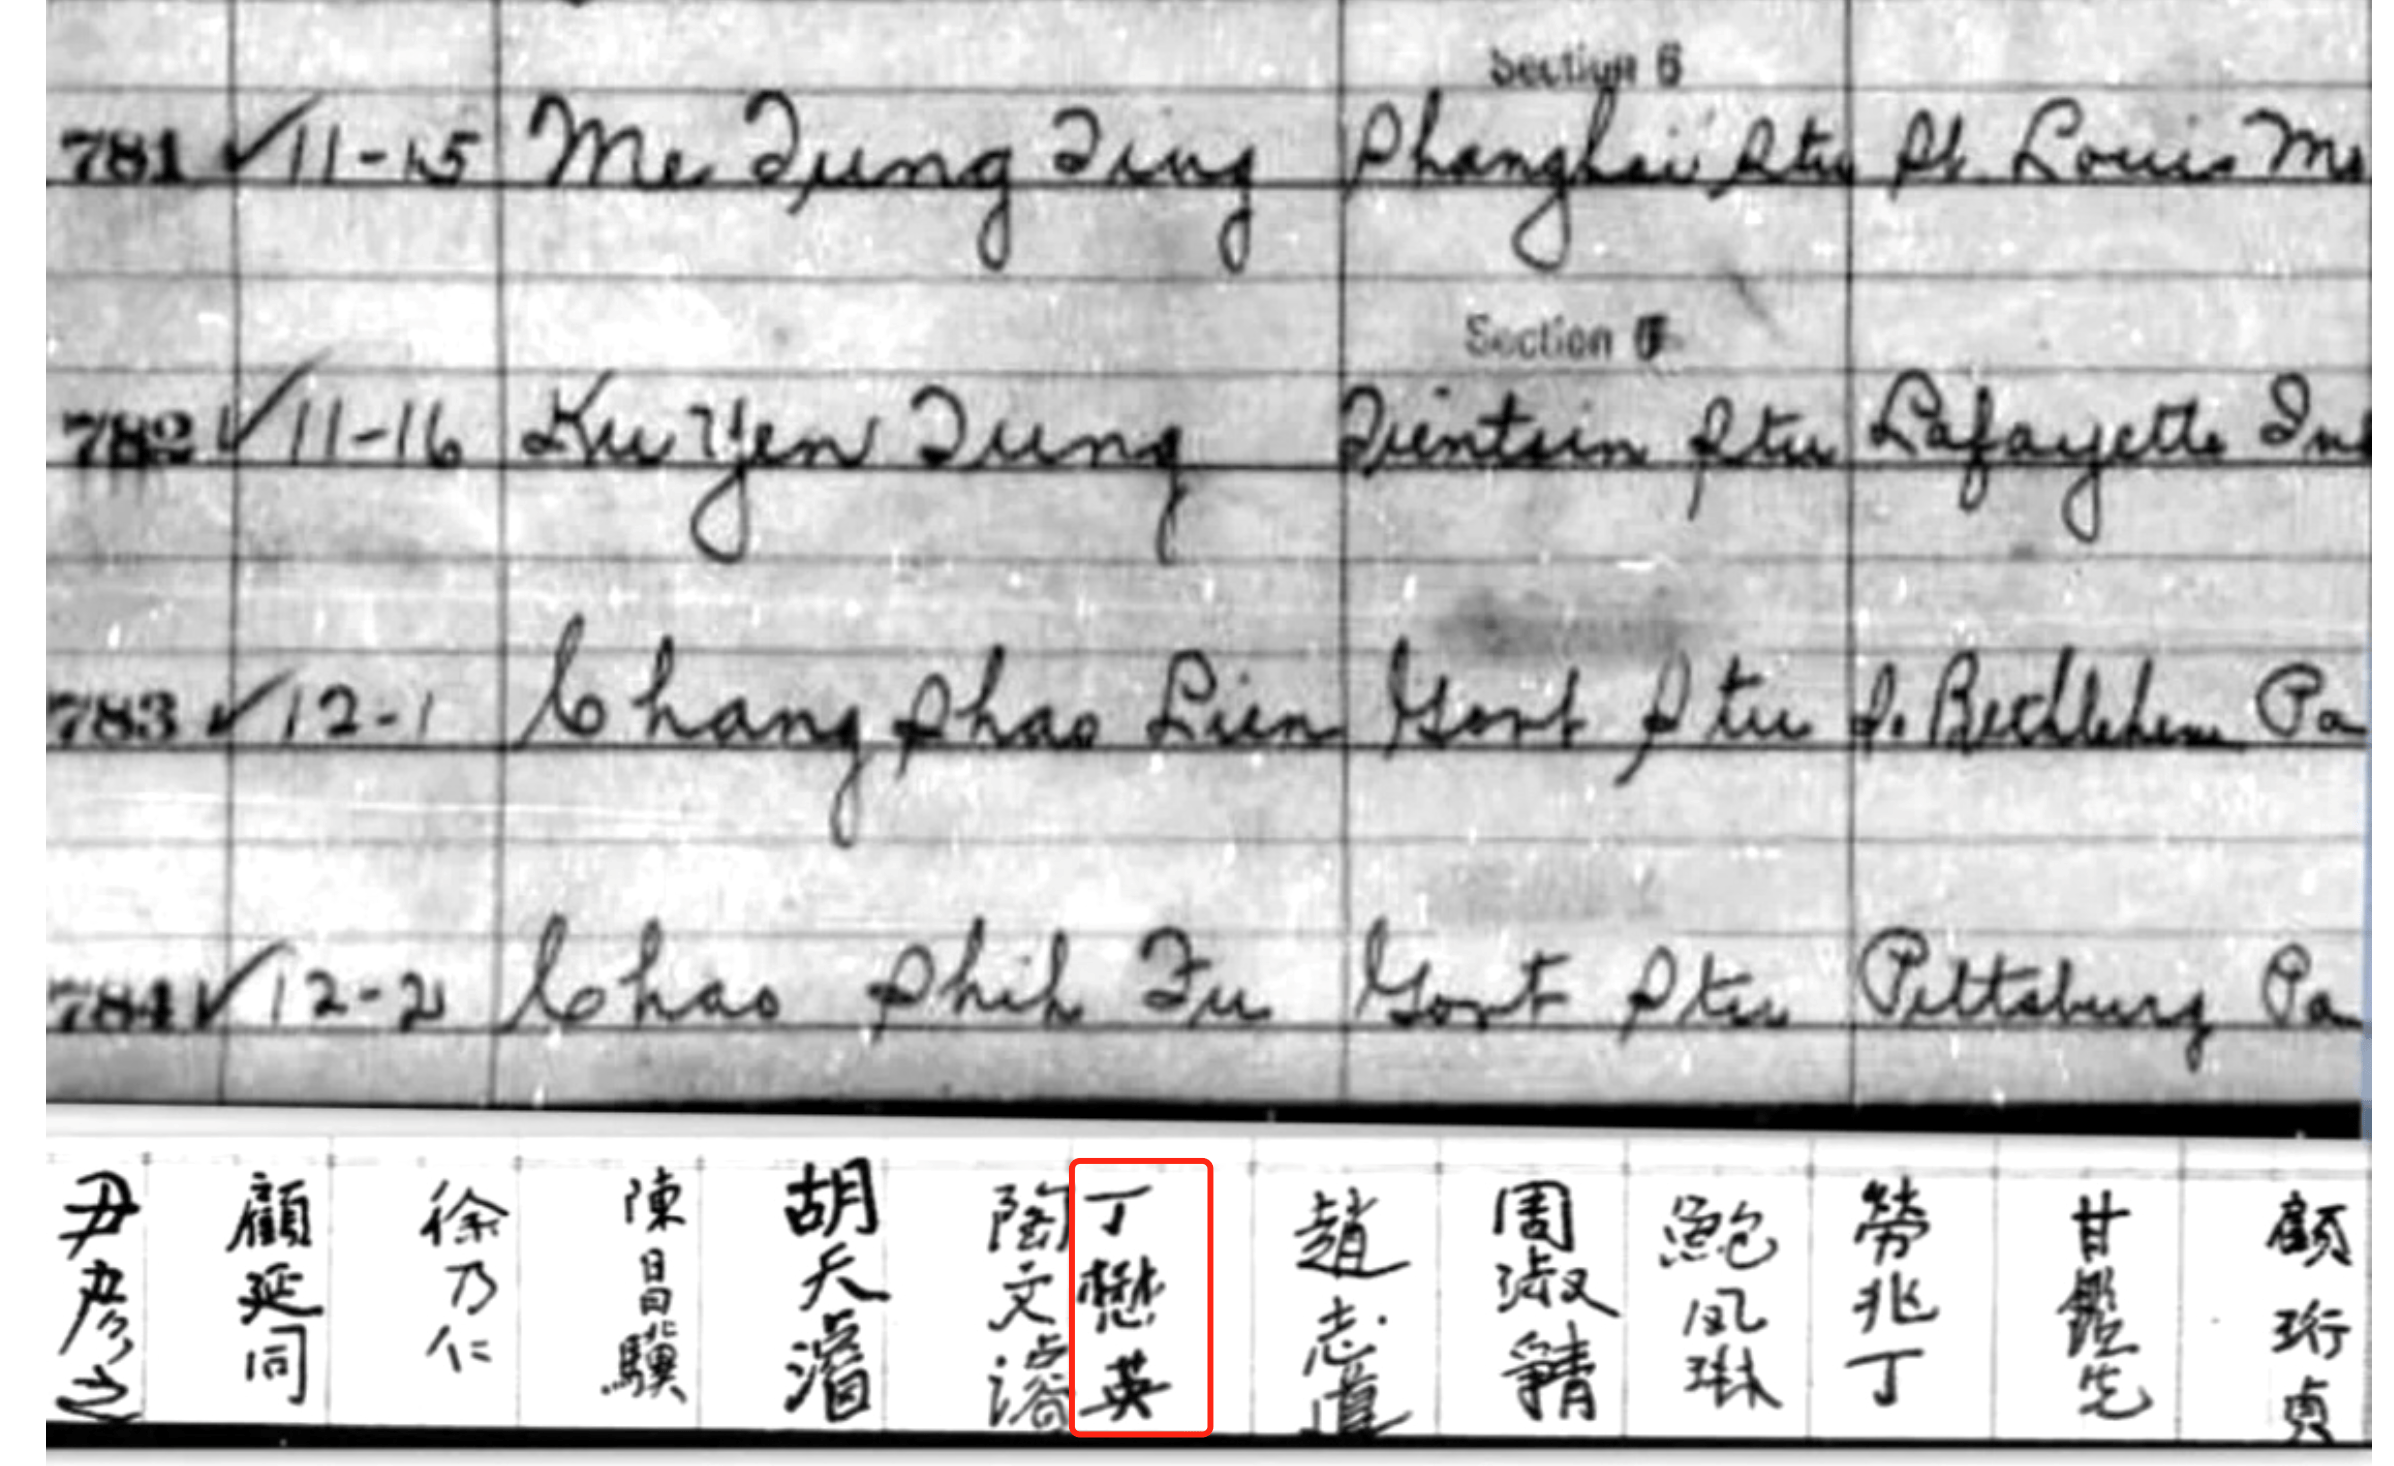 Section 6
781 ✓ 11-15 Me Tung Ting Shanghai Stu St. Louis Mo
Section 6
782 ✓ 11-16 Ku Yen Tung Tientsin Stu Lafayette Ind
783 ✓ 12-1 Chang Shao Lien Govt Stu So. Bethlehem Pa
784 ✓ 12-2 Chao Shih Fu Govt Stu Pittsburg Pa
尹彦之
顧延同
徐乃仁
陳昌驥
胡天濬
陶文濬
丁懋英
趙志道
周淑
鮑凤琳
勞兆丁
甘鑑先
顧珩貞